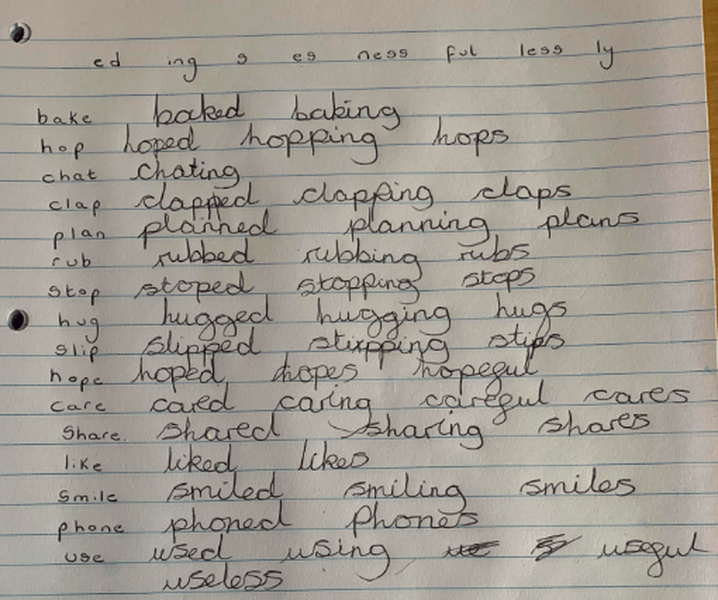 ed ing s es ness ful less ly
bake baked baking
hop hoped hopping hops
chat chating
clap clapped clapping claps
plan planned planning plans
rub rubbed rubbing rubs
stop stoped stopping stops
hug hugged hugging hugs
slip slipped stipping stips
hope hoped hopes hopeful
care cared caring careful cares
share shared sharing shares
like liked likes
smile smiled smiling smiles
phone phoned Phones
use used using useful
useless